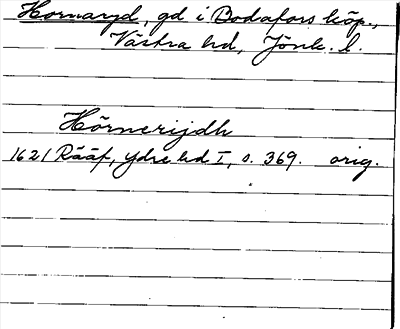 Hornaryd, gd i Bodafors köp.,
Västra hd, Jönk. l.
Hörnerijdh
1621 Rääf, Ydre hd I, s. 369. orig.